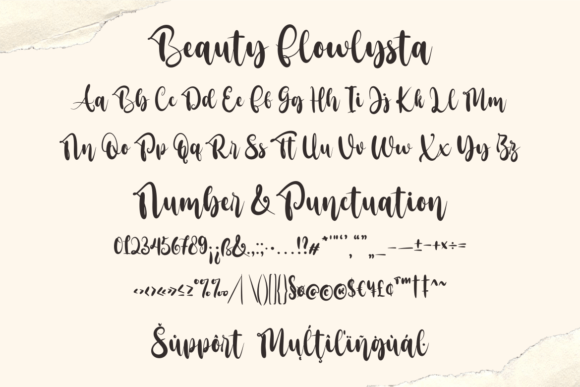 Beauty Flowlysta
Aa Bb Cc Dd Ee Ff Gg Hh Ii Jj Kk Ll Mm
Nn Oo Pp Qq Rr Ss Tt Uu Vv Ww Xx Yy Zz
Number & Punctuation
0123456789¡¿ß&.,:;··…!?#*"'"‘’‚“”„_—–-±−+×÷=
‹›‹›«»≤≥°%‰/|\()[]{}§®@©¤$€¥£¢™†‡^~
Ṡúppôrt Mụĺţïľïñġùáĺ